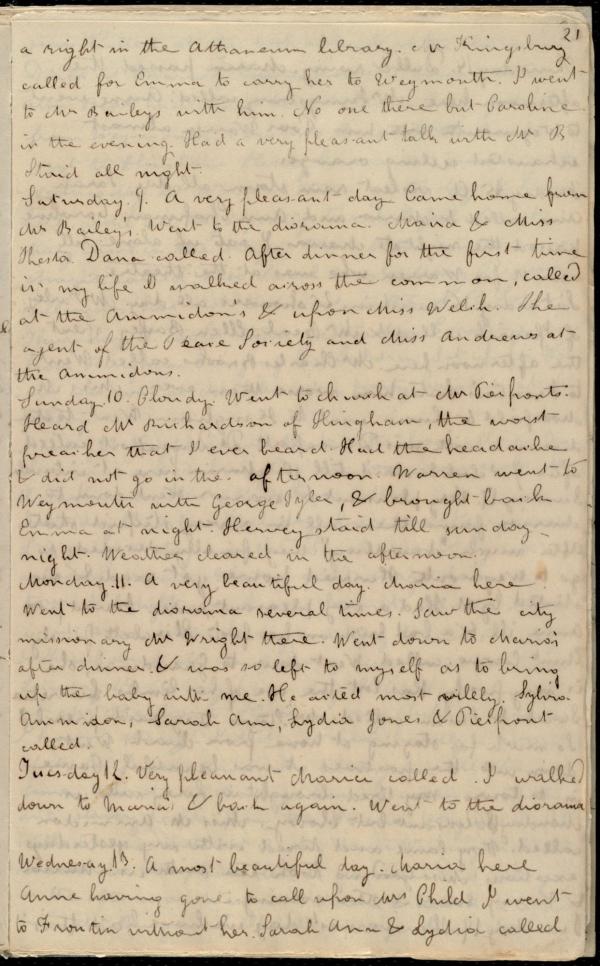 21
a right in the Athaneum library. Mr Kingsbury
called for Emma to carry her to Weymouth. I went
to Mr Baileys with him. No one there but Caroline
in the evening. Had a very pleasant talk with Mr B
Staid all night.
Saturday 9. A very pleasant day Came home from
Mr Bailey's. Went to the diorama. Maria & Miss
Hesta Dana called. After dinner for the first time
in my life I walked across the common, called
at the Ammidon's & upon Miss Welsh. The
agent of the Peace Society and Miss Andrews at
the Ammidons.
Sunday 10. Cloudy. Went to church at Mr Pierponts.
Heard Mr Richardson of Hingham, the worst
preacher that I ever heard. Had the headache
& did not go in the afternoon. Warren went to
Weymouth with George Tyler, & brought back
Emma at night. Hervey staid till sunday
night. Weather cleared in the afternoon.
Monday. 11. A very beautiful day. Maria here
Went to the diorama several times. Saw the city
missionary Mr Wright there. Went down to Maria's
after dinner. & was so left to myself as to bring
up the baby with me. He acted most vilely. Sylvia
Ammidon, Sarah Ann, Lydia Jones & Pierpont
called.
Tuesday 12. Very pleasant Maria called. I walked
down to Maria's & back again. Went to the diorama
Wednesay. 13. A most beautiful day. Maria here
Anne having gone to call upon Mrs Child I went
to Frontin without her. Sarah Ann & Lydia called